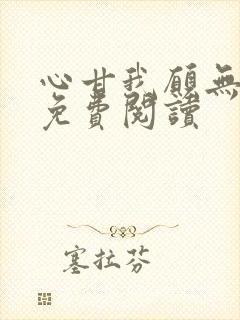 心甘我願無
免費閱讀
塞拉芬